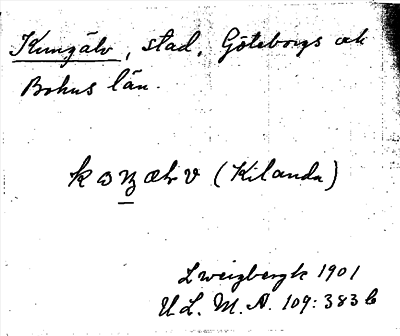 Kungälv, stad, Göteborgs och
Bohus län.
(Kilanda)
Lweigbergk 1901
U L. M. A. 109:383 b